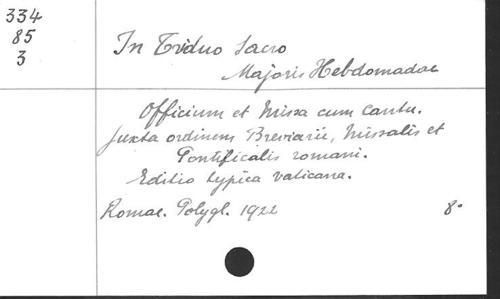 334
85
3
In Triduo Sacro
Majoris Hebdomadae
Officium et Missa cum Cantu.
Juxta ordinem Breviarii, Missalis et
Pontificalis romani.
Editio typica vaticana.
Romae. Polygl. 1922 8°